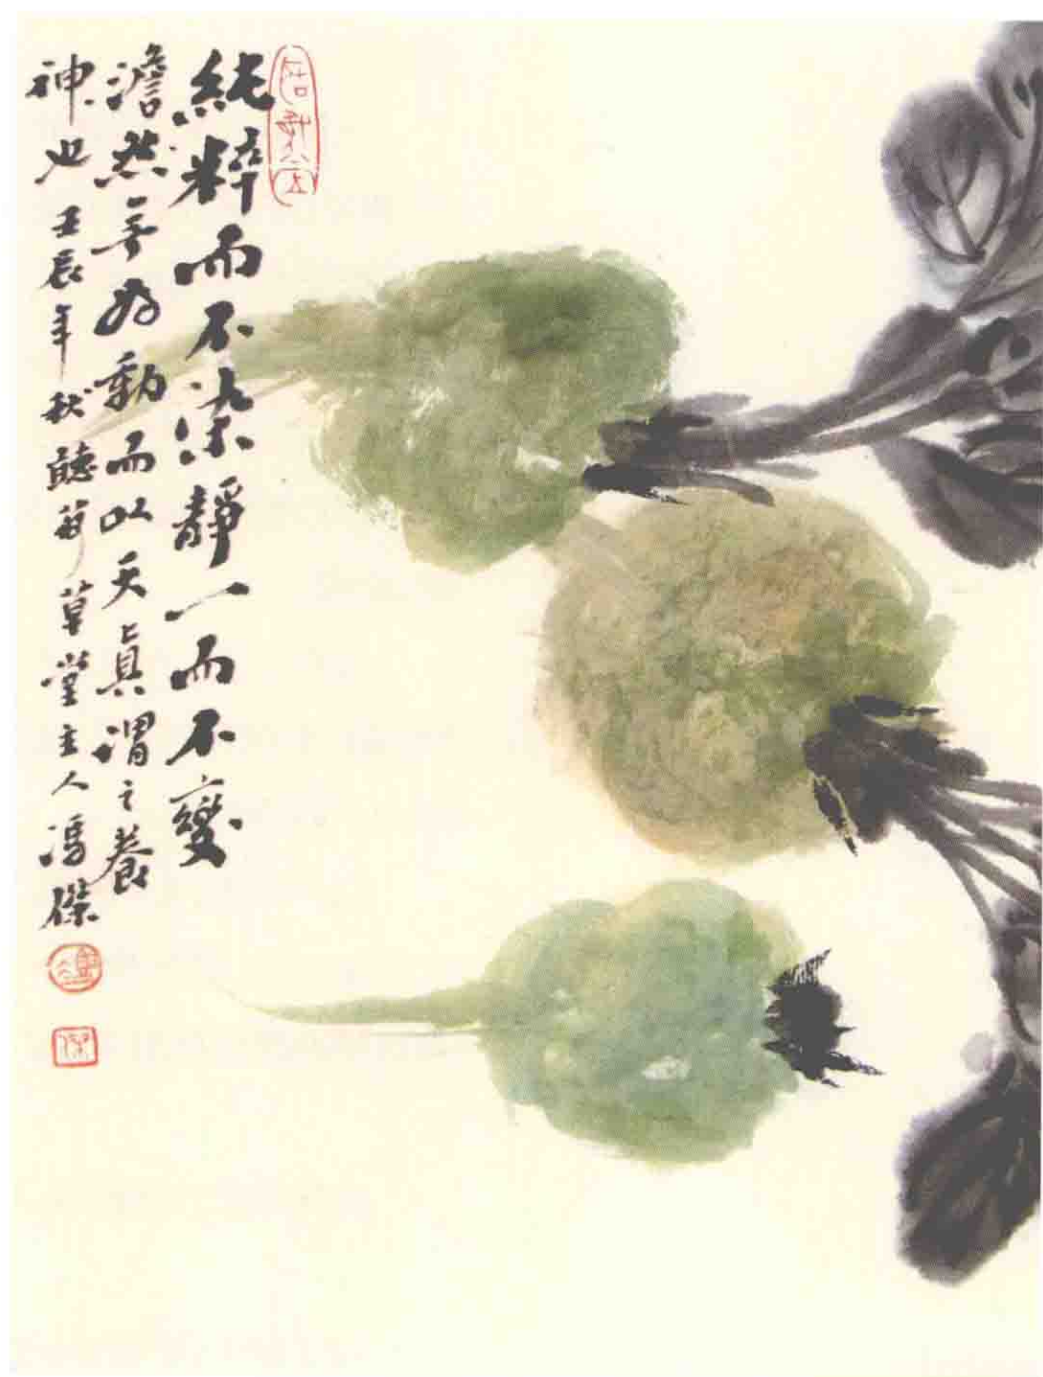 純粹而不染靜一而不變
澹然無為動而以天真謂之養
神也 壬辰年秋聽荷草堂主人馮傑